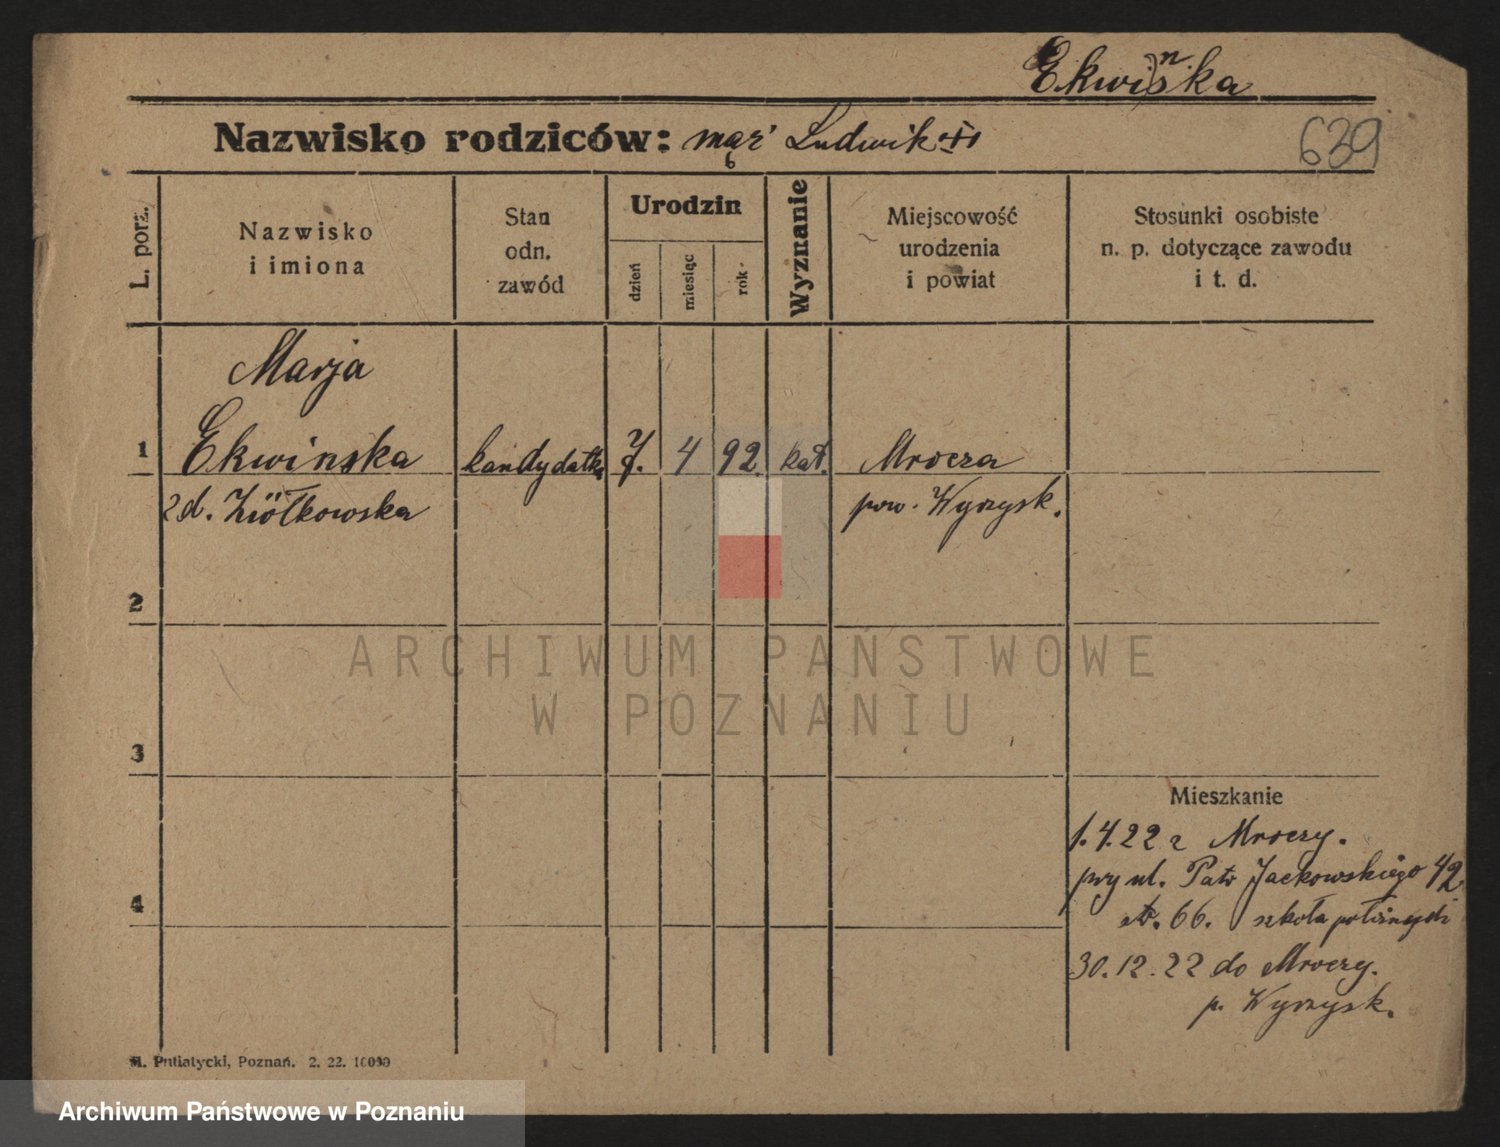 Ekwinska
Nazwisko rodziców: mąż Ludwik
639
L. porz.
Nazwisko
i imiona
Stan
odn.
zawód
Urodzin
dzień
miesiąc
rok
Wyznanie
Miejscowość
urodzenia
i powiat
Stosunki osobiste
n. p. dotyczące zawodu
i t. d.
Marja
1 Ekwinska kandydatka 7. 4 92. kat. Mrocza
zd. Ziółkowska pow. Wyrzysk.
2
3
4
Mieszkanie
1.4.22 z Mroczy.
przy ul. Patr Jackowskiego 42
st. 66. szkoła położnych
30.12.22 do Mroczy.
p. Wyrzysk.
M. Putiatycki, Poznań. 2. 22. 10000
ARCHIWUM PAŃSTWOWE
W POZNANIU
Archiwum Państwowe w Poznaniu